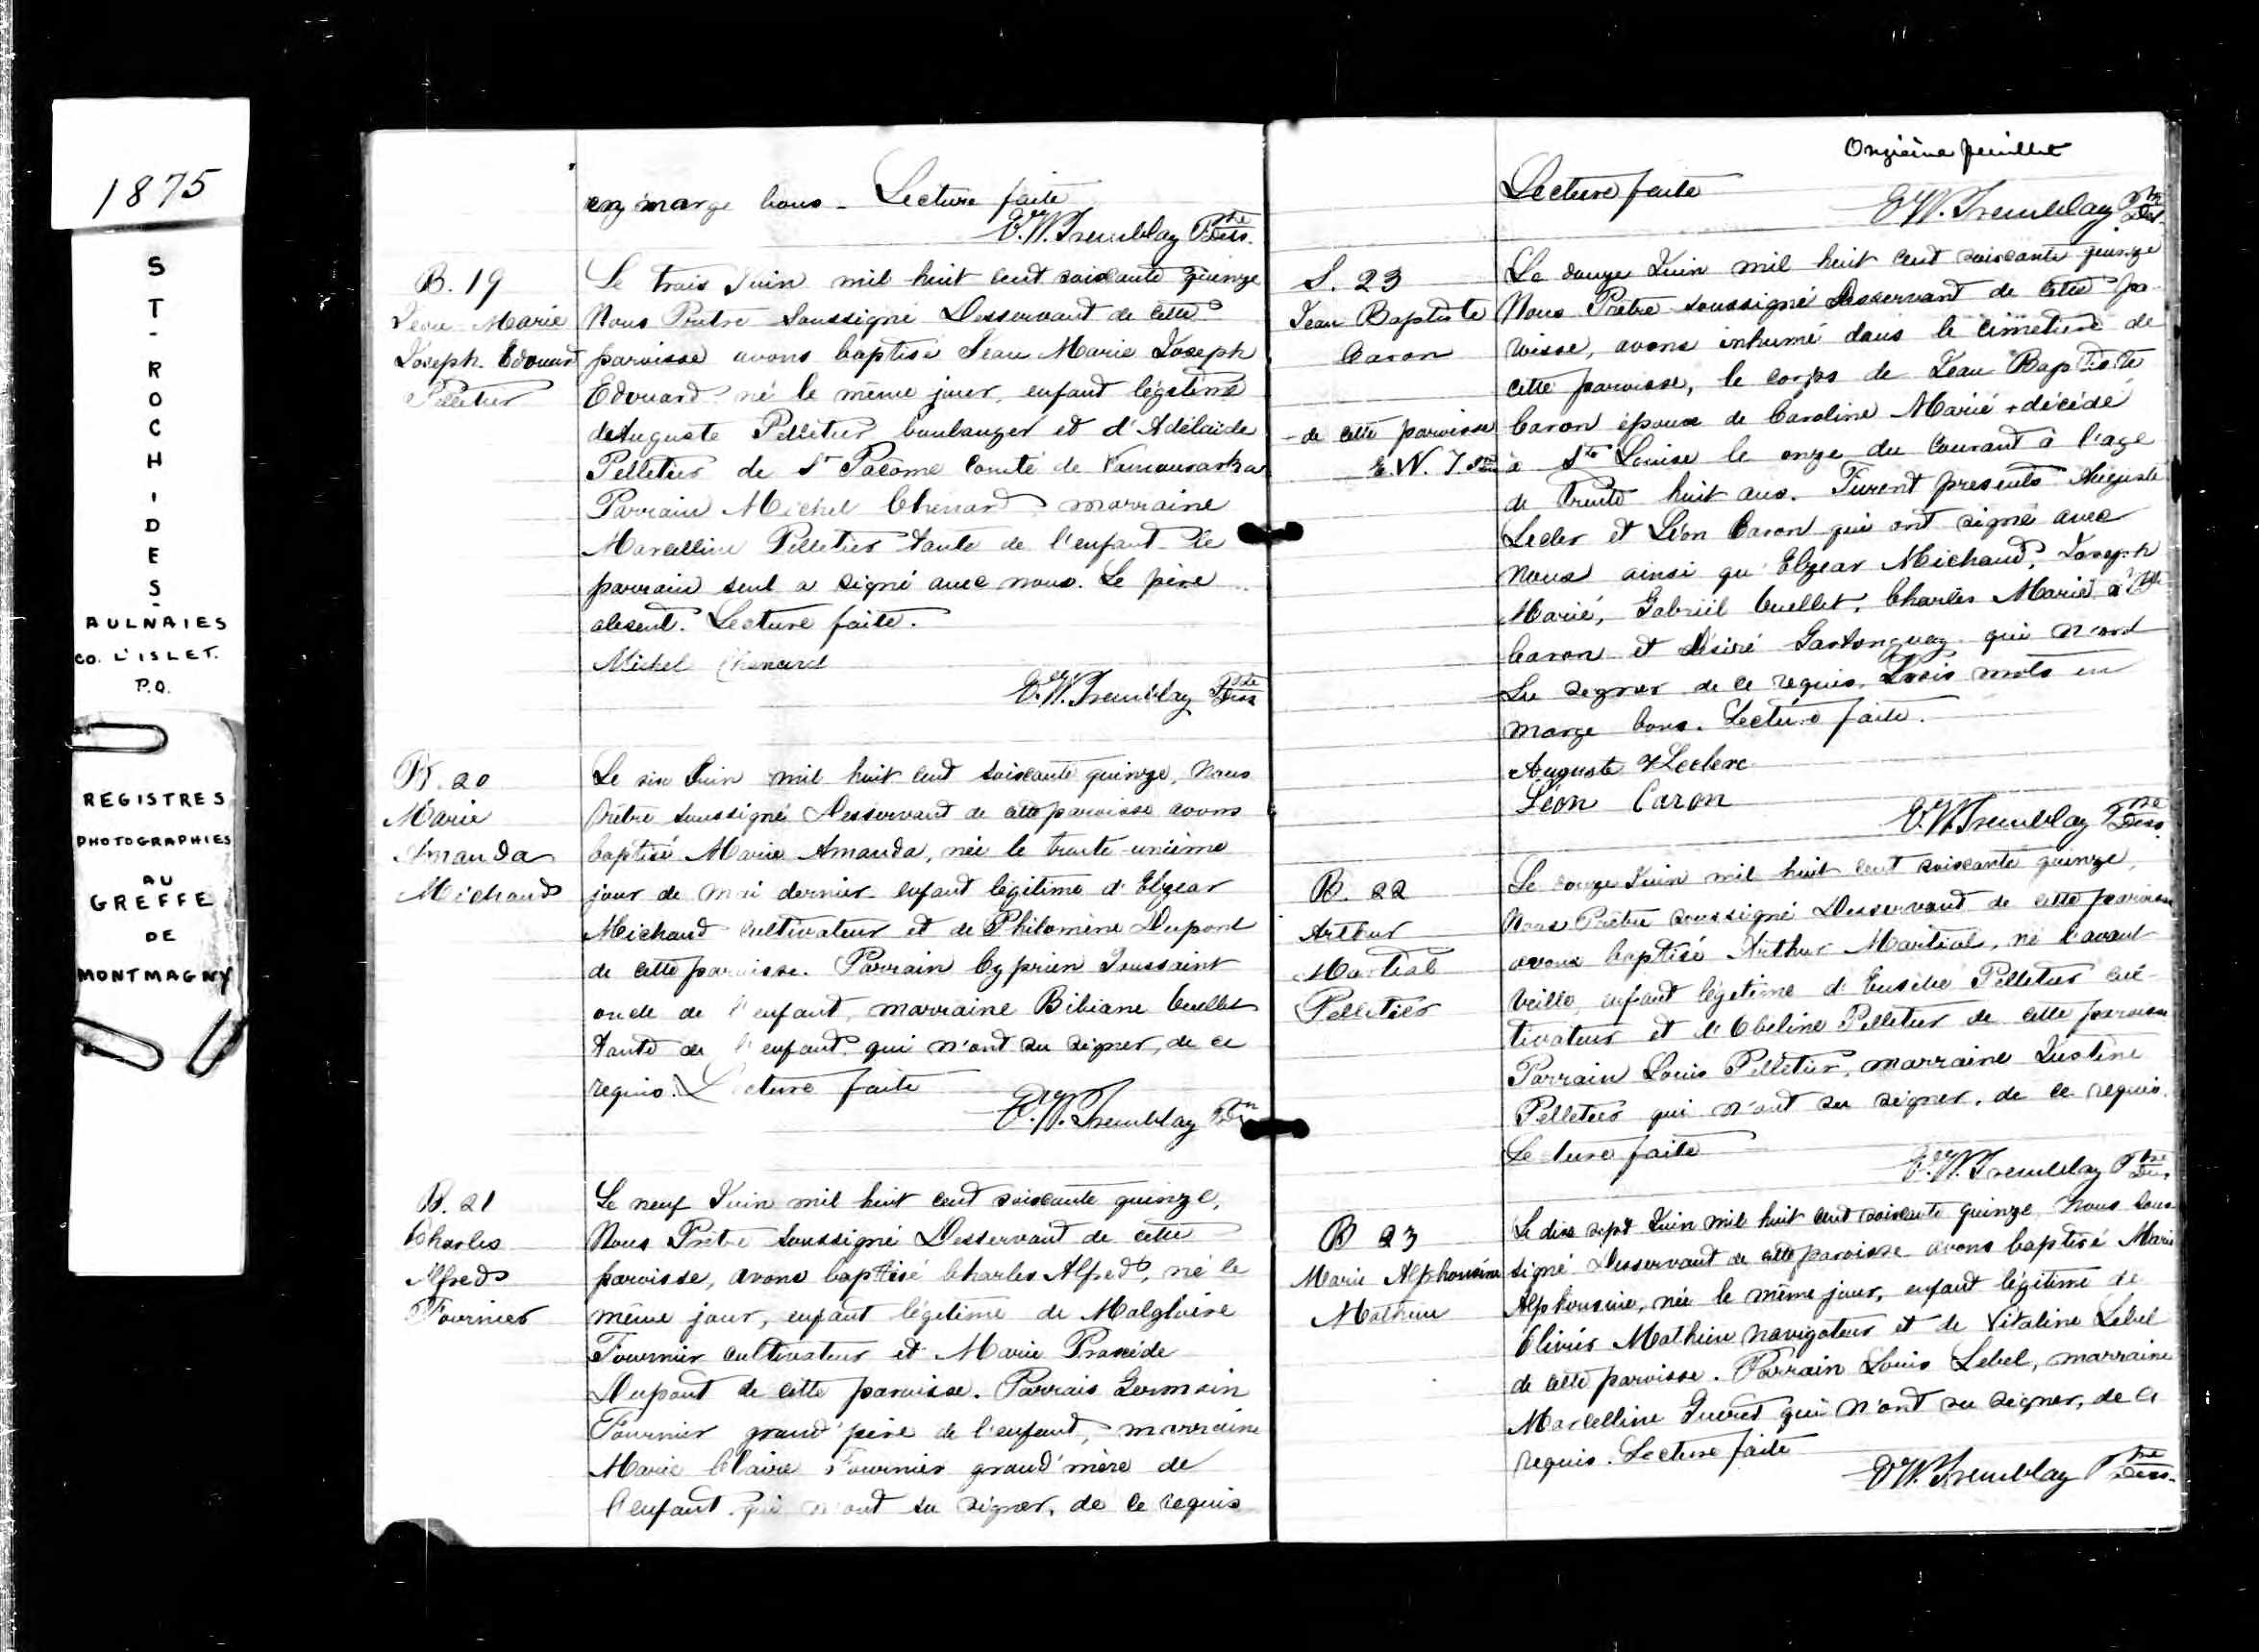 1875
ST-ROCH-DES-
AULNAIES
CO. L'ISLET.
P.Q.
REGISTRES
PHOTOGRAPHIES
AU
GREFFE
DE
MONTMAGNY
en marge bons - Lecture faite
E.W. Tremblay Ptre Dess.
B. 19
Jean Marie
Joseph Edouard
Pelletier
Le trois Juin mil huit cent soixante quinze
Nous Prêtre Soussigné Desservant de cette
paroisse avons baptisé Jean Marie Joseph
Edouard né le même jour, enfant légitime
de Auguste Pelletier boulanger et d'Adélaide
Pelletier de St Pacôme Comté de Kamouraska
Parrain Michel Chenard marraine
Marcelline Pelletier tante de l'enfant le
parrain seul a signé avec nous. Le père
absent. Lecture faite.
Michel Chenard
E.W. Tremblay Ptre Dess
B. 20
Marie
Amanda
Michaud
Le six Juin mil huit cent soixante quinze, Nous
Prêtre soussigné Desservant de cette paroisse avons
baptisé Marie Amanda, née le trente-unième
jour de mai dernier enfant légitime d'Elzear
Michaud cultivateur et de Philomène Dupont
de cette paroisse. Parrain Cyprien Toussaint
oncle de l'enfant, marraine Bibiane Ouellet
tante de l'enfant qui n'ont su signer, de ce
requis. Lecture faite
E.W. Tremblay Ptre
B. 21
Charles
Alfred
Fournier
Le neuf Juin mil huit cent soixante quinze,
Nous Prêtre Soussigné Desservant de cette
paroisse, avons baptisé Charles Alfred, né le
même jour, enfant légitime de Malgloire
Fournier cultivateur et Marie Praxède
Dupont de cette paroisse. Parrain Germain
Fournier grand'père de l'enfant, marraine
Marie Claire Fournier grand'mère de
l'enfant qui n'ont su signer, de ce requis
Onzième feuillet
Lecture faite
E.W. Tremblay Ptre Des.
S. 23
Jean Baptiste
Caron
- de cette paroisse
E.W.T. Ptre
Le douze Juin mil huit cent soixante quinze
Nous Prêtre soussigné Desservant de cette pa-
roisse, avons inhumé dans le cimetière de
cette paroisse, le corps de Jean Baptiste
Caron époux de Caroline Marié + décédé
à Ste Louise le onze du courant à l'age
de trente huit ans. Furent présents Auguste
Lecler et Léon Caron qui ont signé avec
Nous ainsi qu'Elzear Michaud, Joseph
Marié, Gabriel Ouellet, Charles Marié
Caron et Désiré Gastonguay qui n'ont
su signer de ce requis. Trois mots en
marge bons. Lecture faite.
Auguste Leclerc
Léon Caron
E.W. Tremblay Ptre Dess.
B. 22
Arthur
Martial
Pelletier
Le douze Juin mil huit cent soixante quinze,
Nous Prêtre soussigné Desservant de cette paroisse
avons baptisé Arthur Martial, né l'avant
veille, enfant légitime d'Eusèbe Pelletier cul-
tivateur et d'Obeline Pelletier de cette paroisse
Parrain Louis Pelletier, marraine Justine
Pelletier qui n'ont su signer, de ce requis.
Lecture faite
E.W. Tremblay Ptre Des.
B 23
Marie Alphonsine
Mathieu
Le dix sept Juin mil huit cent soixante quinze Nous sous-
signé Desservant de cette paroisse avons baptisé Marie
Alphonsine, née le même jour, enfant légitime de
Olivier Mathieu navigateur et de Vitaline Lebel
de cette paroisse. Parrain Louis Lebel, marraine
Marcelline qui n'ont su signer, de ce
requis. Lecture faite
E.W. Tremblay Ptre Dess.